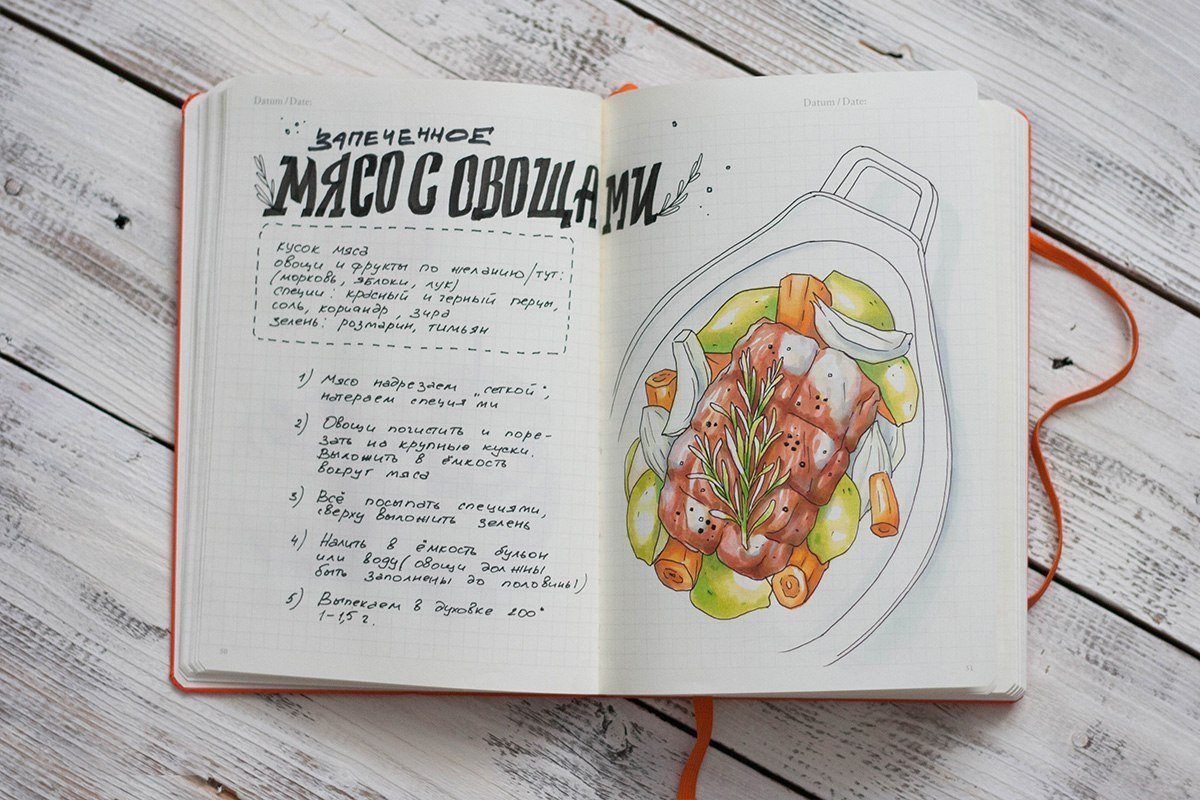 Datum / Date:
Datum / Date:
ЗАПЕЧЕННОЕ
МЯСО С ОВОЩАМИ
кусок мяса
овощи и фрукты по желанию/тут:
(морковь, яблоки, лук)
специи: красный и черный перцы,
соль, кориандр, зира
зелень: розмарин, тимьян
1) Мясо надрезаем „сеткой",
натераем специями
2) Овощи почистить и поре-
зать на крупные куски.
Выложить в ёмкость
вокруг мяса
3) Всё посыпать специями,
сверху выложить зелень
4) Налить в ёмкость бульон
или воду (овощи должны
быть заполнены до половины!)
5) Выпекаем в духовке 200°
1-1,5 г.
50
51